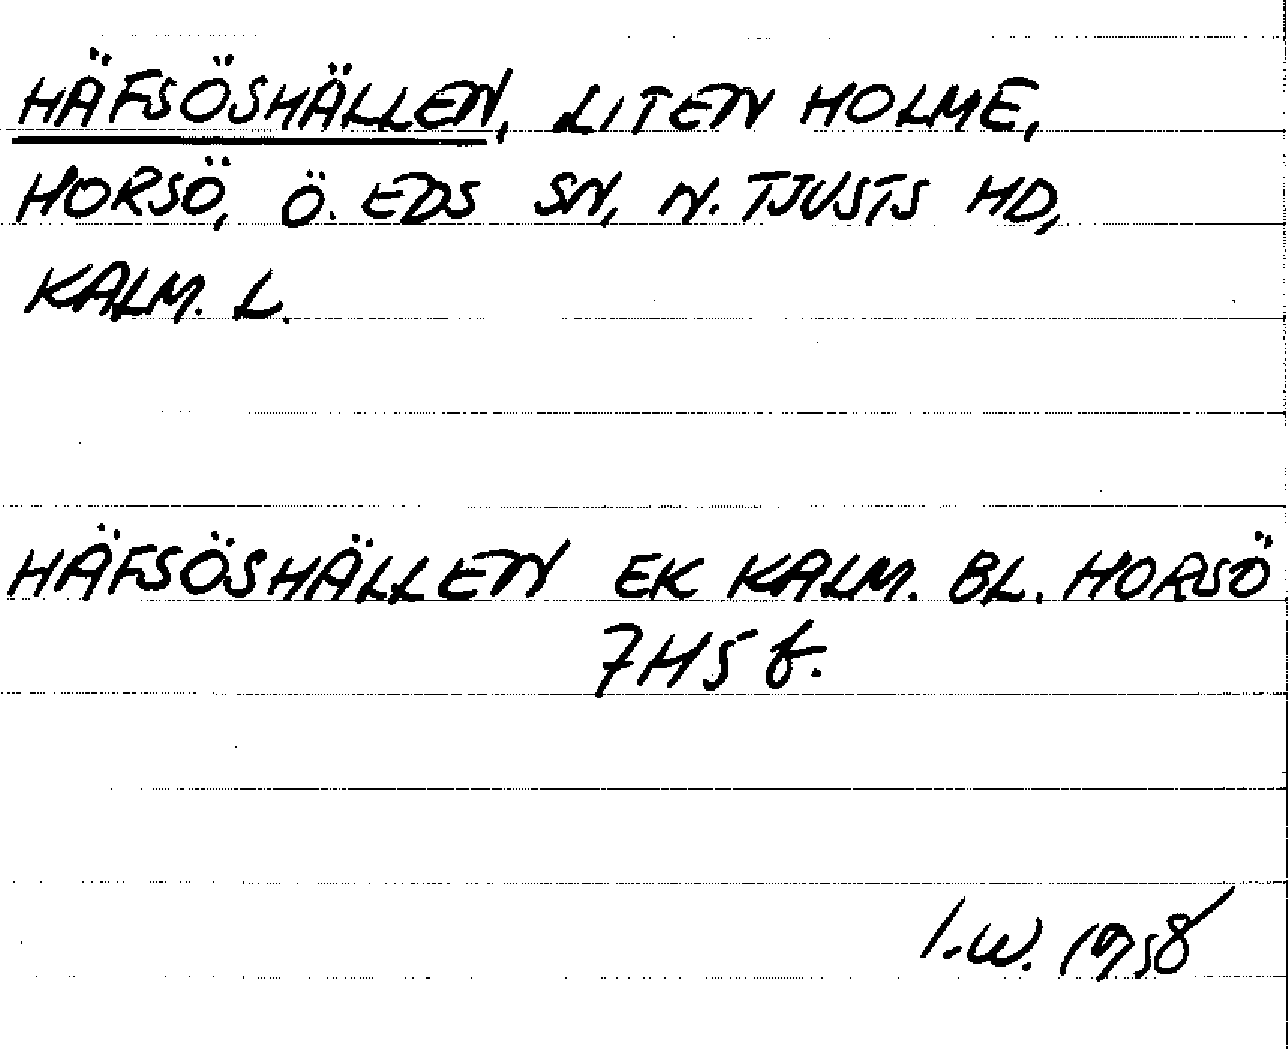 HÄFSÖSHÄLLEN, LITEN HOLME,
HORSÖ, Ö. EDS SN, N. TJUSTS HD,
KALM. L.
HÄFSÖSHÄLLEN EK KALM. BL. HORSÖ
7H5f.
I.W. 1958